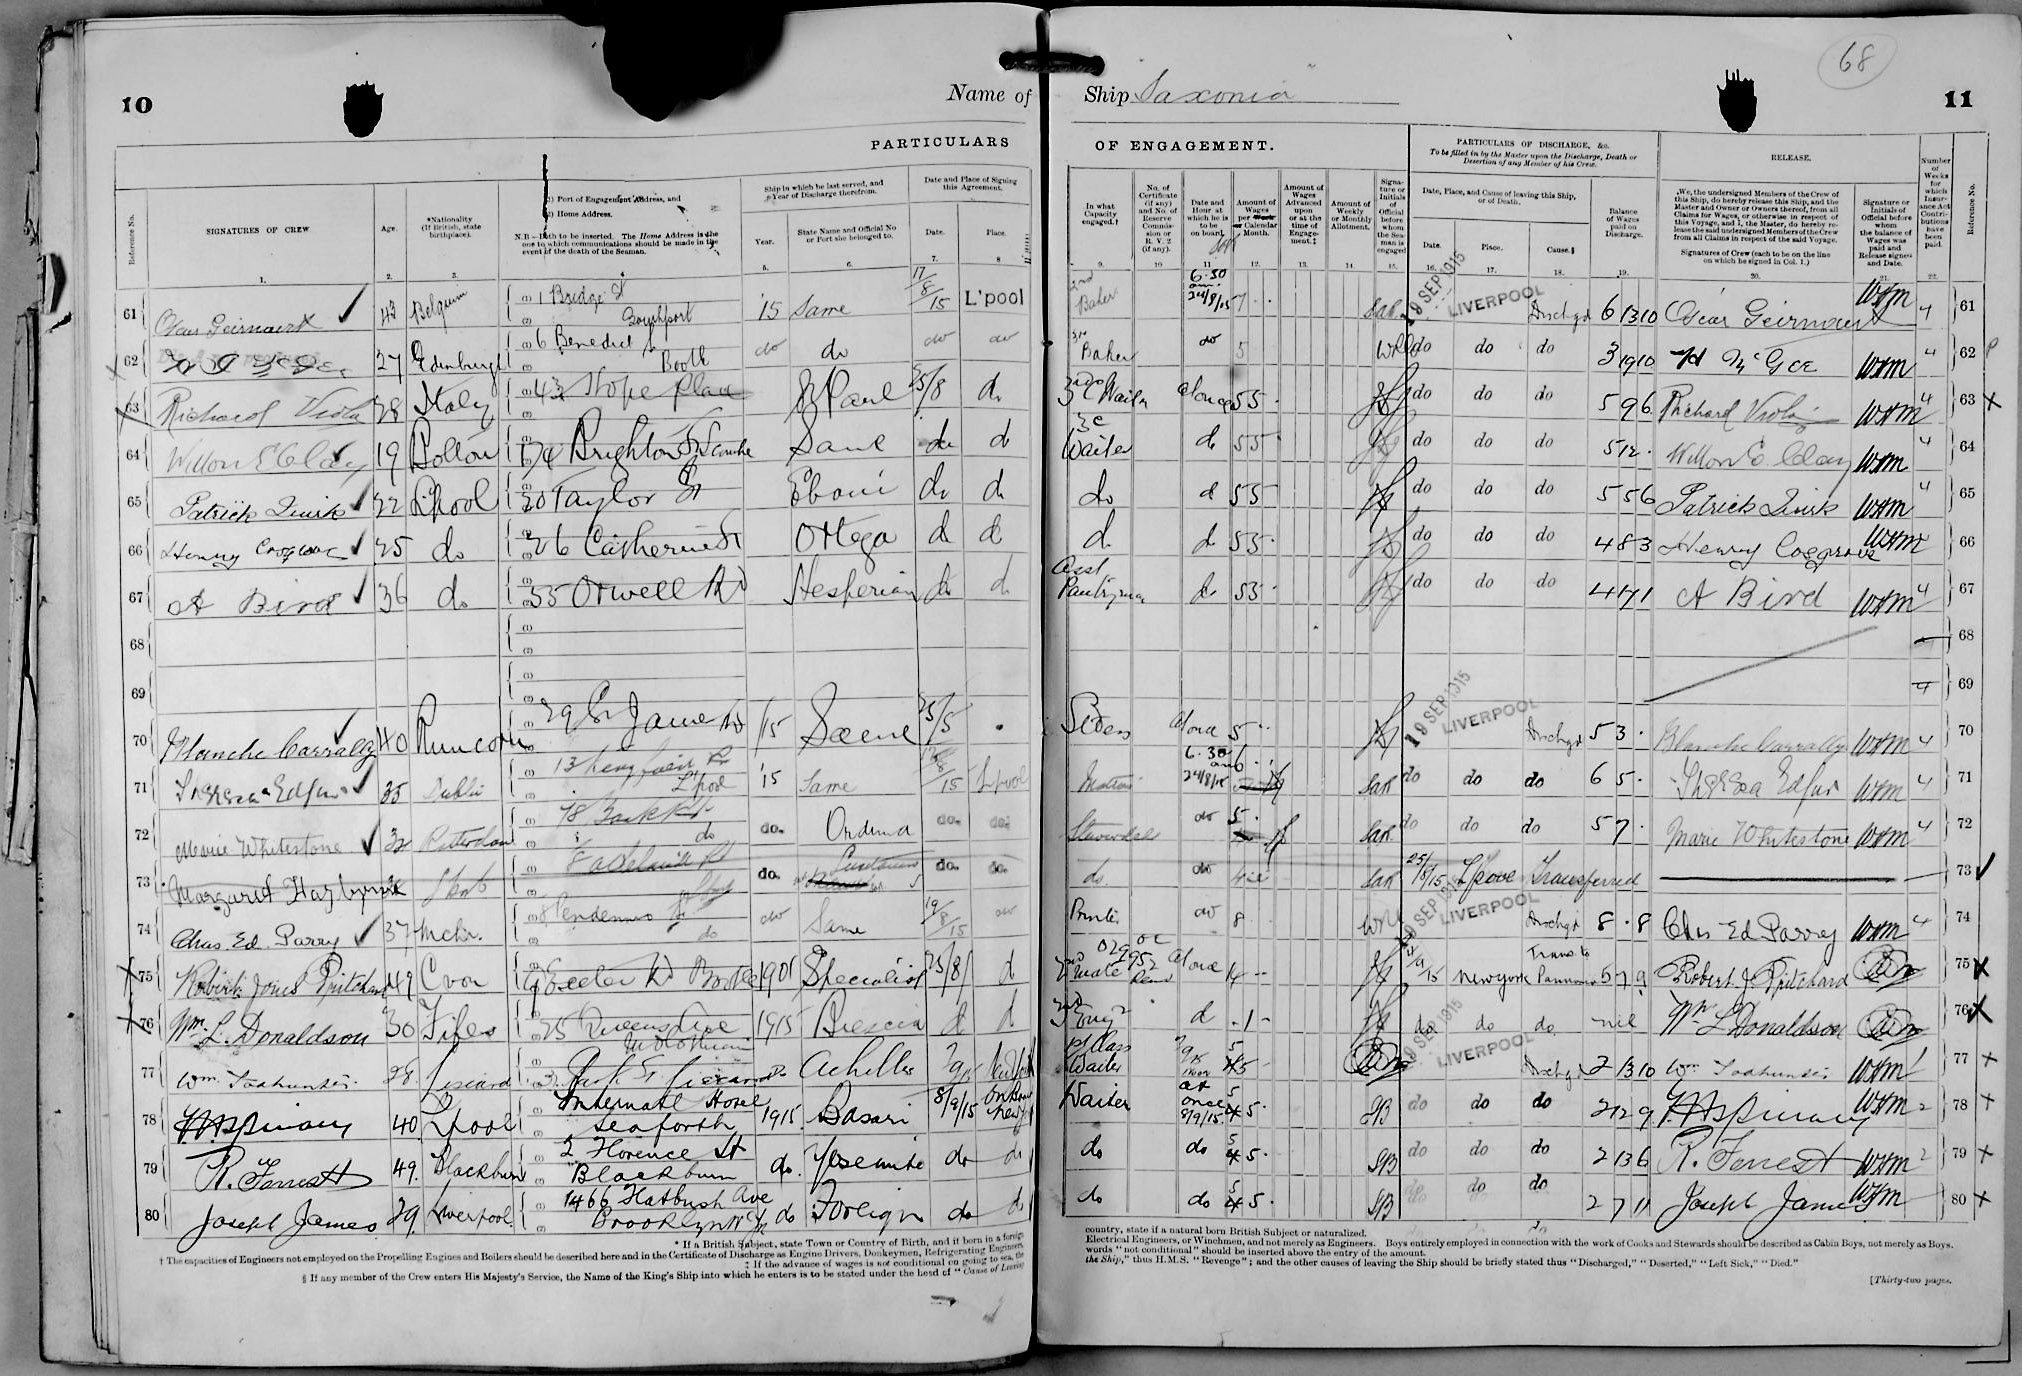 68
10
Name of
Ship Saxonia
11
PARTICULARS
OF ENGAGEMENT.
PARTICULARS OF DISCHARGE, &c.
To be filled in by the Master upon the Discharge, Death or Desertion of any Member of his Crew.
RELEASE.
Reference No.
SIGNATURES OF CREW
Age.
*Nationality (If British, state birthplace).
(1) Port of Engagement Address, and
(2) Home Address.
N.B.—Both to be inserted. The Home Address is the one to which communications should be made in the event of the death of the Seaman.
Ship in which he last served, and Year of Discharge therefrom.
Year.
State Name and Official No or Port she belonged to.
Date and Place of Signing this Agreement.
Date.
Place.
In what Capacity engaged.†
No. of Certificate (if any) and No. of Reserve Commission or R. V. 2 (if any).
Date and Hour at which he is to be on board
Amount of Wages per Week or Calendar Month.
Amount of Wages Advanced upon or at the time of Engagement.‡
Amount of Weekly or Monthly Allotment.
Signature or Initials of Official before whom the Seaman is engaged
Date, Place, and Cause of leaving this Ship, or of Death.
Date.
Place.
Cause.§
Balance of Wages paid on Discharge.
We, the undersigned Members of the Crew of this Ship, do hereby release this Ship, and the Master and Owner or Owners thereof, from all Claims for Wages, or otherwise in respect of this Voyage, and I, the Master, do hereby release the said undersigned Members of the Crew from all Claims in respect of the said Voyage.
Signatures of Crew (each to be on the line on which he signed in Col. 1.)
Signature or Initials of Official before whom the balance of Wages was paid and Release signed and Date.
Number of Weeks for which Insurance Act Contributions have been paid.
Reference No.
61 43 Belgium 1 Bridge St Southport '15 Same 17/8/15 L'pool 2nd Baker 6.30 am 24/8/15 7 19 SEP 1915 LIVERPOOL Dischgd 6 13 10 Oscar Geirnaert WHM 4 61
62 27 Edinburgh 6 Benedict St Bootle do do do do 3rd Baker do 5 do do do 3 19 10 H McGee WHM 4 62
63 Richard Viola 28 Italy 43 Hope Place St Paul 25/8 do 3rd C Waiter at once 55 do do do 5 9 6 Richard Viola WHM 4 63
64 Wilton E Clay 19 Bolton 174 Brighton St Seacombe Same do do 3c Waiter do 55 do do do 5 12 Wilton E. Clay WHM 4 64
65 Patrick Quirk 22 L'pool 20 Taylor St Eboni do do do do 55 do do do 5 5 6 Patrick Quirk WHM 4 65
66 Henry Cosgrove 25 do 26 Catherine St Ortega do do do do 55 do do do 4 8 3 Henry Cosgrove WHM 66
67 A Bird 36 do 35 Orwell Rd Hesperian do do Asst Pantryman do 55 do do do 4 17 1 A Bird WHM 4 67
68 68
69 4 69
70 Blanche Carrally 40 Runcorn 29 St James Rd /15 Same 25/8 Stdess at once 5 19 SEP 1915 LIVERPOOL Dischgd 5 3 Blanche Carrally WHM 4 70
71 35 Dublin L'pool '15 Same /15 L'pool Matron 6.30 am 24/8/15 6 do do do 6 5 Theresa Edfur WHM 4 71
72 Marie Whitestone 32 Rotterdam do do. Orduna do. do. Stewardess do 5 do do do 5 7 Marie Whitestone WHM 4 72
73 Margaret do. do. do. do. do 25/8/15 L'pool Transferred 73
74 Chas. Ed. Parry 37 Mchr. do do Same 19/8/15 do Printer do 8 19 SEP 1915 LIVERPOOL Dischgd 8 8 Chas Ed Parry WHM 4 74
75 Robert Jones Pritchard 49 Cvon 9 Exeter Rd Bootle 1901 Specialist 25/8/ d 2nd mate at once 14 /9/15 New York Trans to Pannonia 5 7 9 Robert J. Pritchard 75
76 Wm. L. Donaldson 30 Fifes 35 Queens Drive 1915 Brescia d d 3rd Engr d do do do nil Wm L Donaldson 76
77 Wm. Todhunter. 28 Liscard Liscard do Achilles New York 1st Class Waiter 19 SEP 1915 LIVERPOOL Dischgd 2 13 10 Wm Todhunter WHM 77
78 40 L'pool Internatl House Seaforth 1915 Basari 8/9/15 Waiter at once 8/9/15 5 5 SB do do do 2 12 9 WHM 2 78
79 R. Forrest 49. Blackburn 2 Florence St Blackburn do. Yosemite do do do do 5 5 SB do do do 2 13 6 R. Forrest WHM 2 79
80 Joseph James 29. Liverpool 1466 Flatbush Ave Brooklyn N.Y. do Foreign do do do do 5 5 SB do do do 2 7 11 Joseph James WHM 80
* If a British Subject, state Town or Country of Birth, and if born in a foreign
country, state if a natural born British Subject or naturalized.
† The capacities of Engineers not employed on the Propelling Engines and Boilers should be described here and in the Certificate of Discharge as Engine Drivers, Donkeymen, Refrigerating Engineers,
Electrical Engineers, or Winchmen, and not merely as Engineers. Boys entirely employed in connection with the work of Cooks and Stewards should be described as Cabin Boys, not merely as Boys.
‡ If the advance of wages is not conditional on going to sea, the
words "not conditional" should be inserted above the entry of the amount.
§ If any member of the Crew enters His Majesty's Service, the Name of the King's Ship into which he enters is to be stated under the head of "Cause of Leaving
the Ship," thus H.M.S. "Revenge"; and the other causes of leaving the Ship should be briefly stated thus "Discharged," "Deserted," "Left Sick," "Died."
[Thirty-two pages.